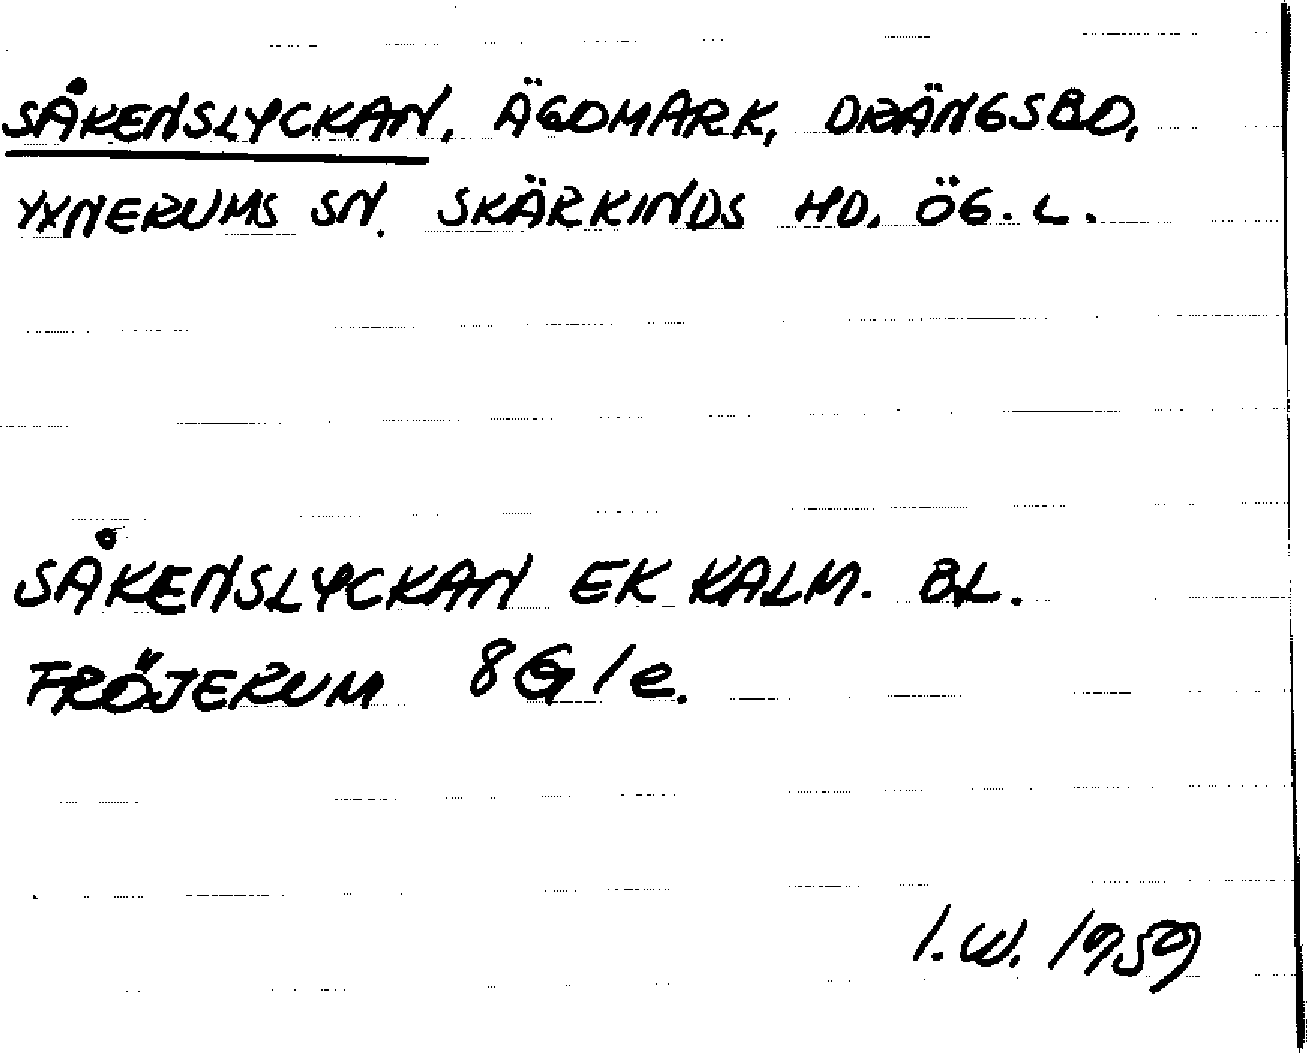 SÅKENSLYCKAN, ÄGOMARK, DRÄNGSBO,
YXNERUMS SN. SKÄRKINDS HD. ÖG. L.
SÅKENSLYCKAN EK KALM. BL.
FRÖJERUM 8G/e.
I.W. 1959